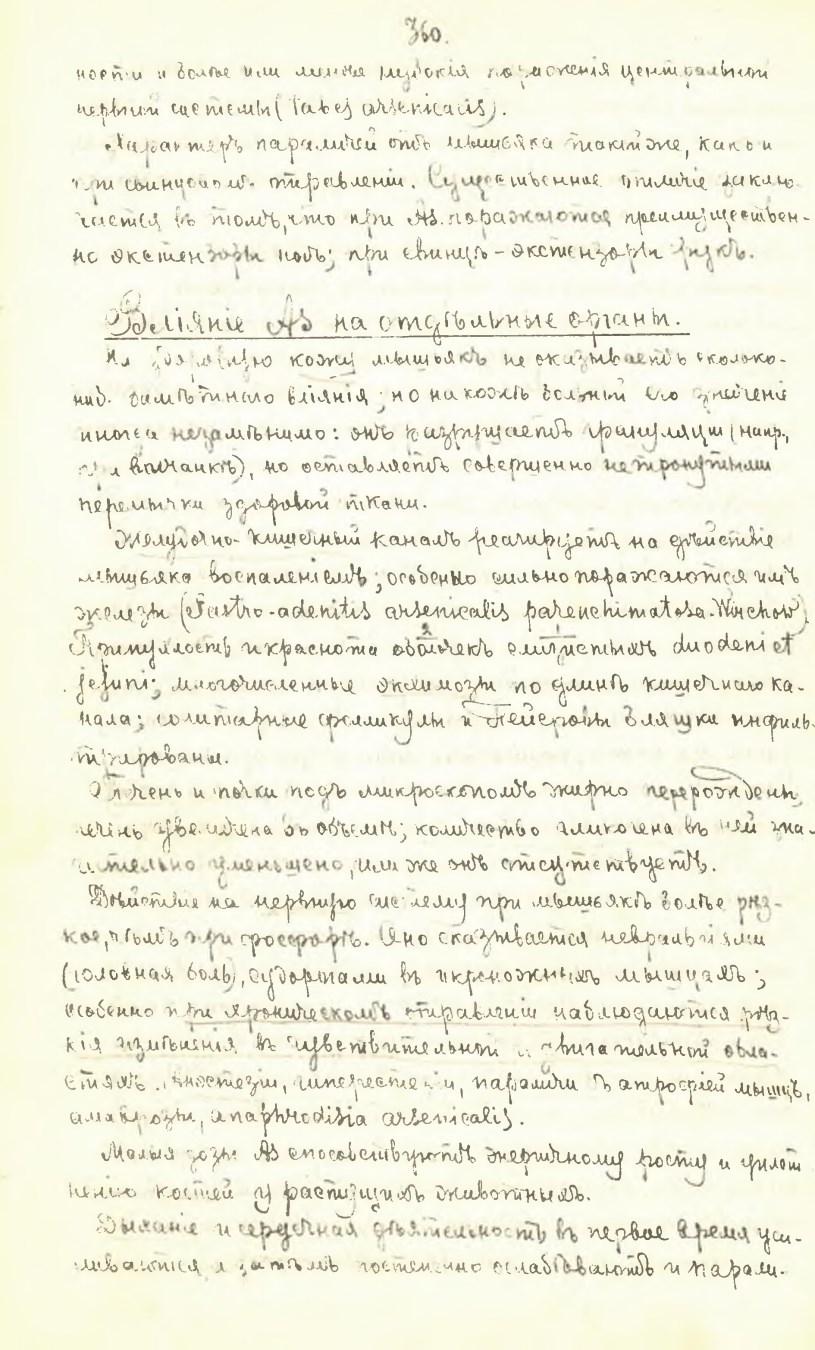 360.
ности и болѣе или менѣе глубокія пораженія центральной
нервной системы (Tabes arsenicalis).
Характеръ параличей отъ мышьяка такой же, какъ и
при свинцовомъ отравленіи. Существенное отличіе заклю-
чается въ томъ, что при As. поражаются преимуществен-
но экстензоры ногъ; при свинцѣ - экстензоры рукъ.
Вліяніе As на отдѣльные органы.
На здоровую кожу мышьякъ не оказываетъ сколько-
ниб. замѣтнаго вліянія; но на кожѣ больной его значеніе
иногда незамѣнимо: онъ разрушаетъ грануляціи (напр.,
при волчанкѣ), но оставляетъ совершенно нетронутыми
перемычки здоровой ткани.
Желудочно-кишечный каналъ реагируетъ на дѣйствіе
мышьяка воспаленіемъ; особенно сильно поражаются имъ
железы (Gastro-adenitis arsenicalis parenchimatosa-Wirchow).
Припухлость и краснота оболочекъ слизистыхъ duodeni et
jejuni; многочисленные экхимозы по длинѣ кишечнаго ка-
нала; солитарные фолликулы и Пейеровы бляшки инфиль-
трированы.
Печень и почки подъ микроскопомъ жирно перерождены,
печень увеличена въ объемѣ; количество гликогена въ ней зна-
чительно уменьшено, или же онъ отсутствуетъ.
Дѣйствіе на нервную систему при мышьякѣ болѣе рѣз-
кое, чѣмъ при фосфорѣ. Оно сказывается невральгіями
(головная боль), судорогами въ икроножныхъ мышцахъ;
особенно при хроническомъ отравленіи наблюдаются рѣз-
кія измѣненія въ чувствительной и двигательной обла-
стяхъ: анестезіи, гиперестезіи, параличи съ атрофіей мышцъ,
амаврозы, anaphrodisia arsenicalis.
Малыя дозы As способствуютъ энергичному росту и уплот-
ненію костей у растущихъ животныхъ.
Дыханіе и сердечная дѣятельность въ первое время уси-
ливаются и затѣмъ постепенно ослабѣваютъ и парали-